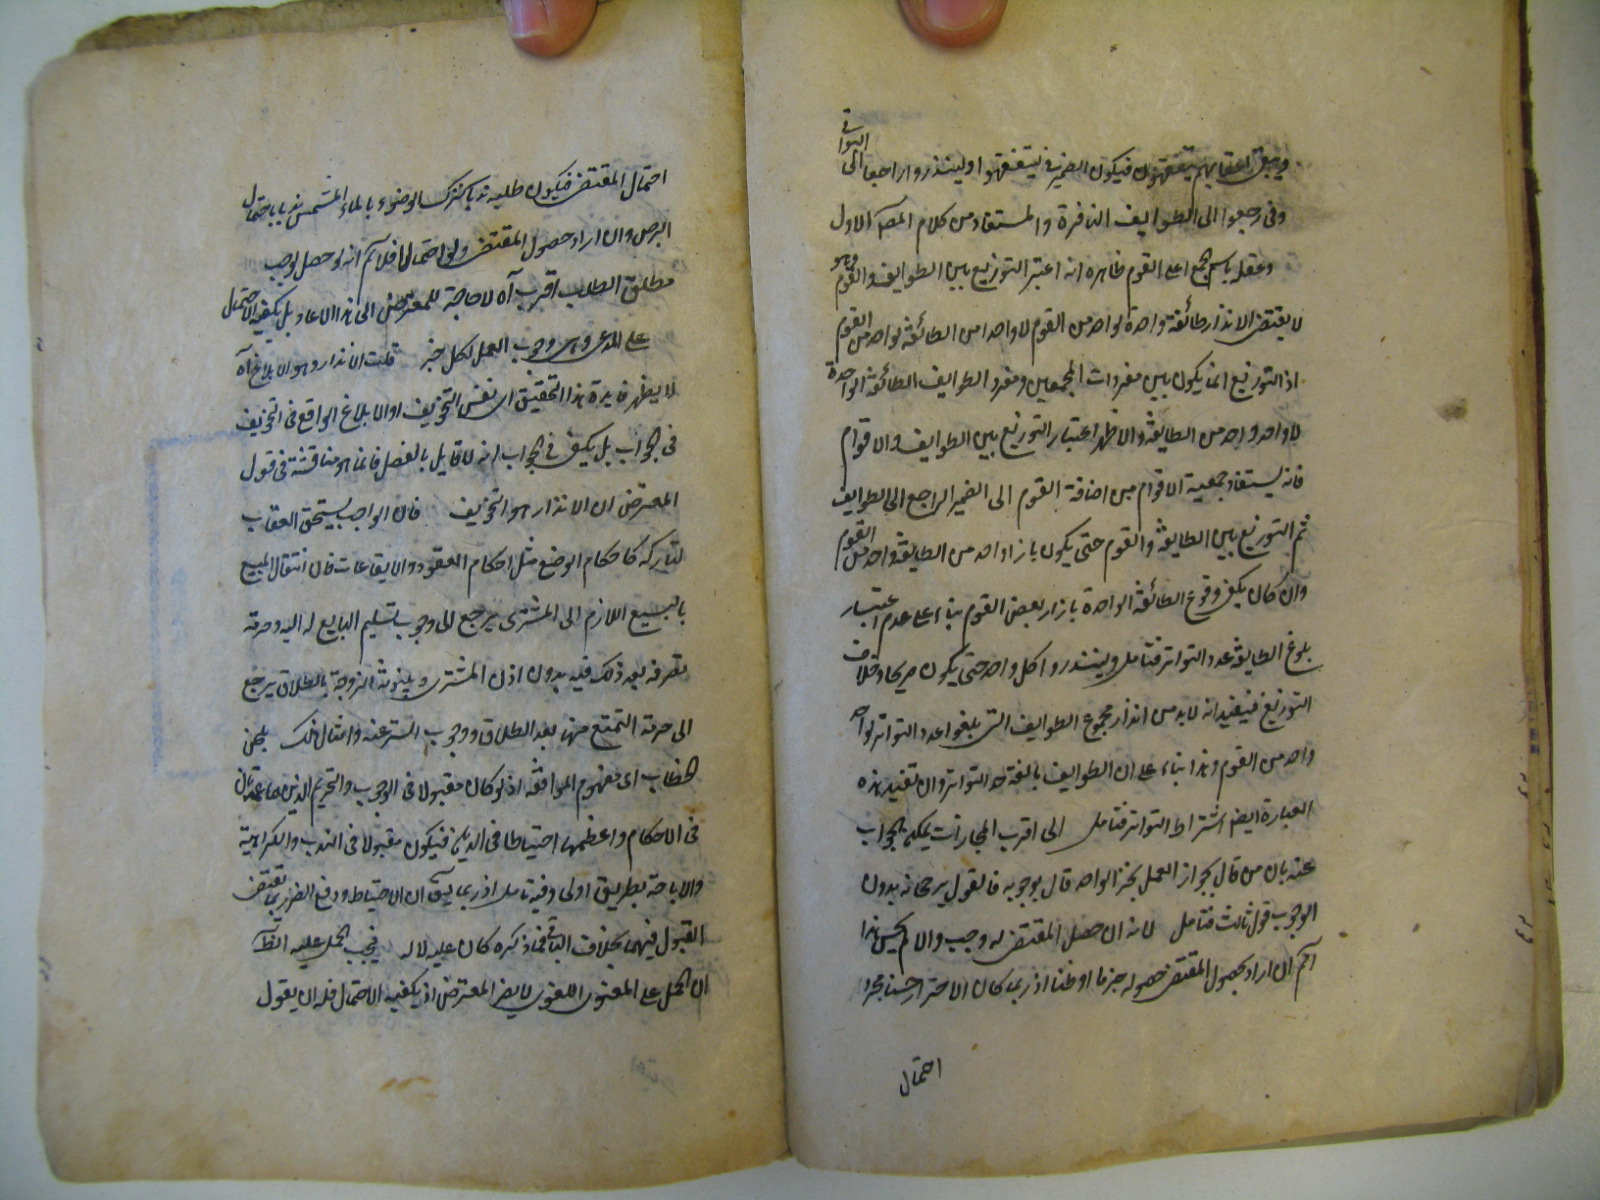 ويبقى اعقابهم يتفقهون فيكون الضمير في ليتفقهوا ولينذروا راجعا الى البواقي
وفى رجعوا الى الطوايف النافرة والمستفاد من كلام المصـ الاول
وهو
لا يقتضى الانذار طائفة واحدة لواحد من القوم لا واحدا من الطائفة لواحد من القوم
اذ التوزيع انما يكون بين مفردات المجمعين ومفرد الطوايف الطائفة الواحدة
لا واحد واحد من الطايفة والاظهر اعتبار التوزيع بين الطوايف والاقوام
فانه يستفاد جمعية الاقوام من اضافة القوم الى الضمير الراجع الى الطوايف
ثم التوزيع بين الطايفة والقوم حتى يكون بازاء واحد من الطايفة واحد من القوم
وان كان يكفى وقوع الطائفة الواحدة بازاء بعض القوم بناء على عدم اعتبار
بلوغ الطايفة عدد التواتر فتامل ولينذروا كل واحد حتى يكون صريحا وخلاف
التوزيع فيفيد انه لا بد من انذار مجموع الطوايف التى بلغوا عدد التواتر لواحد
واحد من القوم وهذا بناء على ان الطوايف بالغة حد التواتر وان تفيد هذه
العبارة ايضا اشتراط التواتر فتامل الى اقرب المجازات يمكن الجواب
عنه بان من قال بجواز العمل بخبر الواحد قال بوجوبه فالقول برجحانه بدون
الوجوب قول ثالث فتامل لانه ان حصل المقتضى له وجب والا لم يحسن هذا
انما يتم ان اراد بحصول المقتضى حصوله جزما او ظنا اذ ربما كان الاحتراز حسنا بمجرد
احتمال
احتمال المقتضى فيكون طلبه ندبا كترك الوضوء بالماء المشمس ندبا باحتمال
البرص وان اراد حصول المقتضى ولو احتمالا فلا نم انه لو حصل لوجب
مطلق الطلب اقرب آه لا حاجة للمعترض الى هذا الادعاء بل يكفيه الاحتمال
على المدعى وهى وجوب العمل لكل خبر قلت الانذار وهو الابلاغ آه
لا يظهر فايدة هذا التحقيق ان نفس التخويف او الابلاغ الواقع فى التخويف
فى الجواب بل يكفى فى الجواب انه لا قايل بالفصل فانما هو مناقشة فى قول
المعترض ان الانذار هو التخويف فان الواجب يستحق العقاب
لتاركه كاحكام الوضع مثل احكام العقود والايقاعات فان انتقال المبيع
بالبيع اللازم الى المشترى يرجع الى وجوب تسليم البايع له اليه وحرمة
تصرفه بعد ذلك فيه بدون اذن المشترى وبينونة الزوجة بالطلاق يرجع
الى حرمة التمتع منها بعد الطلاق ووجوب التستر عنه وامثال ذلك بلحن
الخطاب اى مفهوم الموافقة اذ لو كان مقبولا فى الوجوب والتحريم الذين هما عمدتان
فى الاحكام واعظمها احتياطا فى الدين فيكون مقبولا فى الندب والكراهية
والاباحة بطريق اولى وفيه تامل اذ ربما يق ان الاحتياط ودفع الضرر ربما يقتضى
القبول فيهما بخلاف الباقى فما ذكره كان عليه لا له فيجب الحمل عليه الظ
ان الحمل على المعنى اللغوى لا يضر المعترض اذ يكفيه الاحتمال فله ان يقول